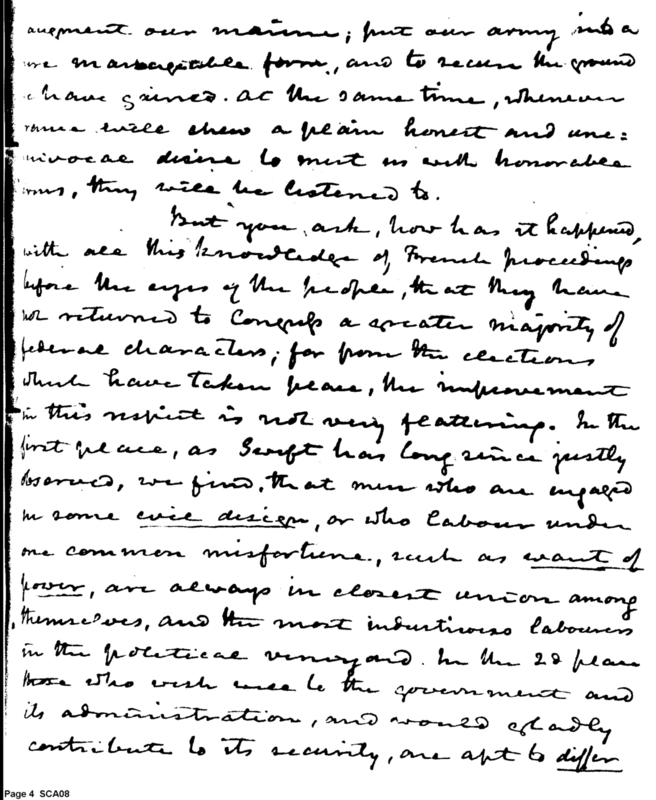 augment our marine; put our army into a
manageable form, and to secure the ground
have gained. at the same time, whenever
will shew a plain honest and une=
quivocal desire to meet us with honorable
terms, they will be listened to.
But you ask, how has it happened,
with all this knowledge of French proceedings
before the eyes of the people, that they have
not returned to Congress a greater majority of
federal characters; for from the elections
which have taken place, the improvement
in this respect is not very flattering. In the
first place, as Swift has long since justly
observed, we find, that men who are engaged
in some evil design, or who labour under
one common misfortune, such as want of
power, are always in closest union among
themselves, and the most industrious labourers
in the political vineyard. In the 2d place
those who wish well to the government and
its administration, and would gladly
contribute to its security, are apt to differ
Page 4 SCA08